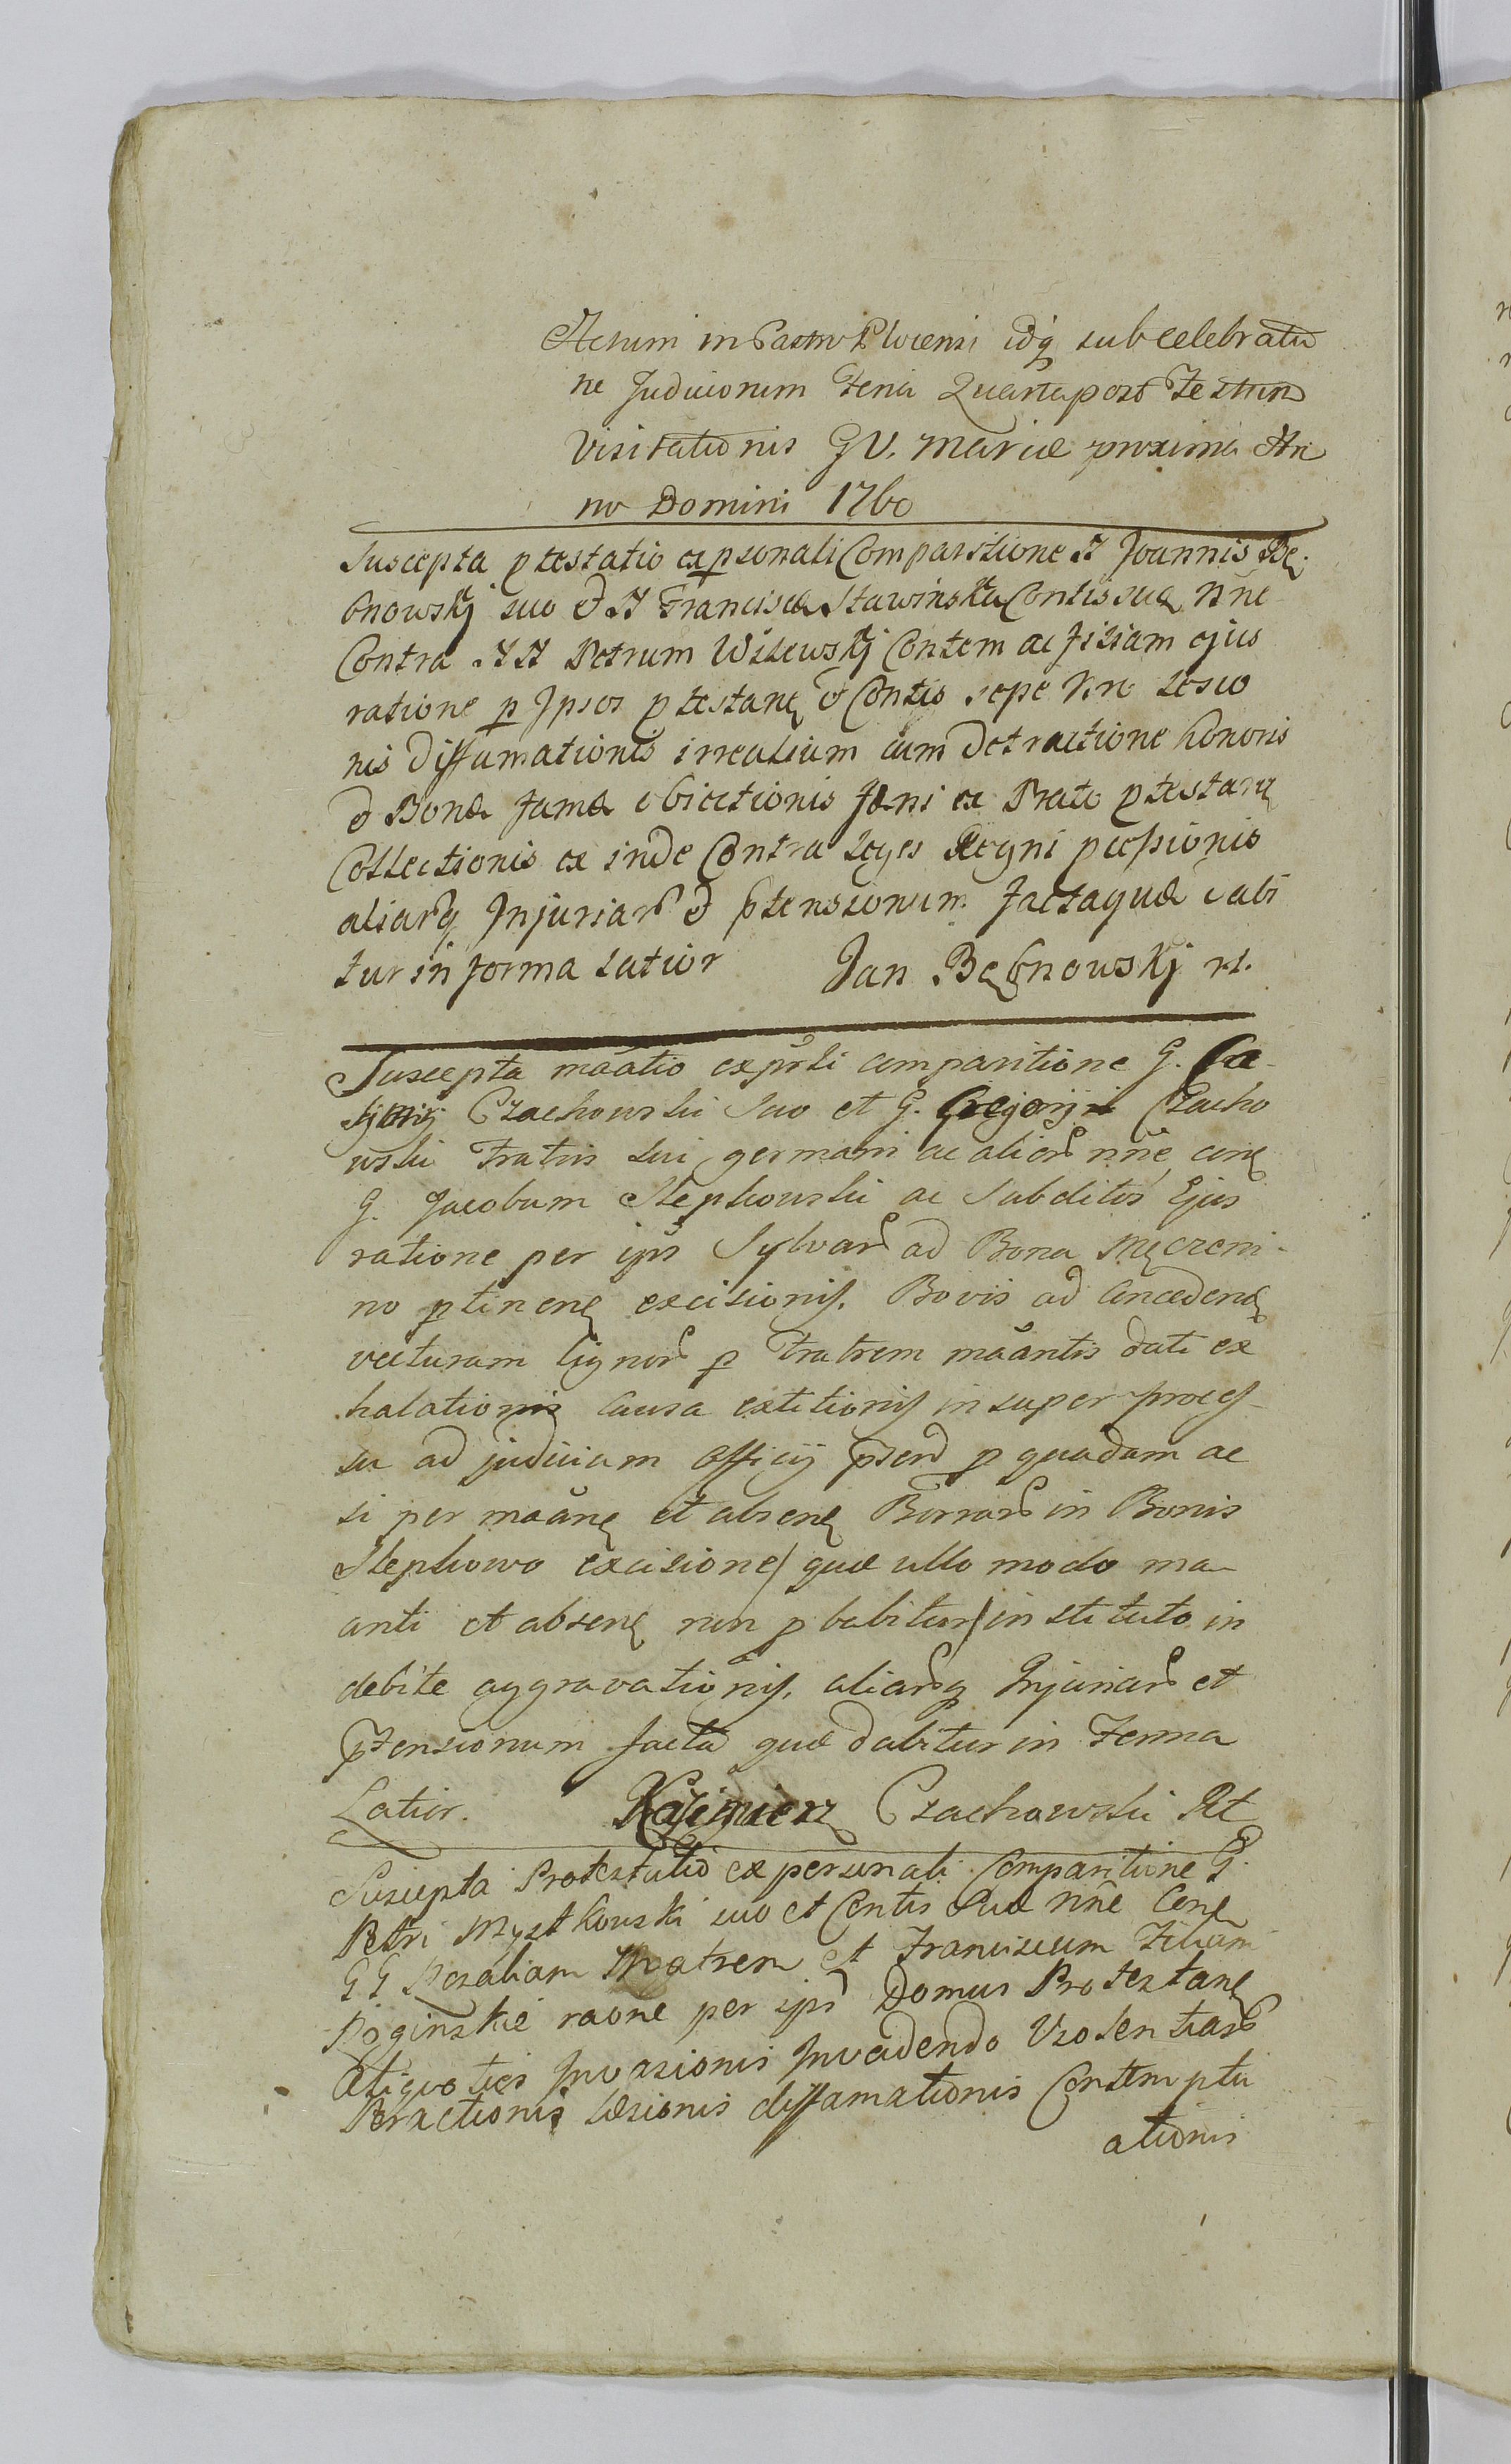 Actum in Castro Plocensi idq sub celebratio
ne Judiciorum Feria Quarta post Festum
Visitationis G V. Mariæ proxima An
no Domini 1760
Suscepta ptestatio ex psonali Comparitione N Joannis Bę
bnowskj suo & N Franciscæ Sławinska Contis suæ nne
Contra N N Petrum Wilewskj Contem ac filiam ejus
ratione p Ipsos ptestanę & Contis sepe Nro Lesio
nis Diffamationis irrealium cum Detractione honoris
& Bonæ famæ obiectionis fæni ex Prato ptestanę
Collectionis ex inde Contra Leges Regni pcepsionis
aliarq Injuriar & ptensionum factaquæ dabi
tur in forma latior Jan Bębnowskj rt.
Suscepta mãatio ex prsli comparitione G. Ca-
Czachowski suo et G. Gregorij Czacho
wski Fratris sui germani ac alior nne conę
G. Jacobum Słepkowski ac Subditos Ejus
ratione per ips Sylvar ad Bona Męczeni-
no ptinenę excisionis. Bovis ad Concedenę
vecturam lignor p Fratrem mãantis dati ex
halationis causa extitionis insuper proces-
su ad judicium Officij psens p quadam ac
si per mãanę et absenę Borrar in Bonis
Słepkowo excisione/ quæ ullo modo ma
anti et absenę non pbabitur/ instituto in
debite aggravationis, aliarq Injuriar et
ptensionum facta quæ dabitur in Forma
Latior. Kazimierz Czachowski Rt
Suscepta Protestatio ex personali Comparitione G.
Petri Mystkowski suo et Contis Suæ nne Conę
G G Rosaliam Matrem et Franciscum Filium
Roginskie raone per ips Domus Protestanę
Aliquoties Invasionis Invadendo Violentiar
Peractionis Læsionis diffamationis Contemptu
ationis